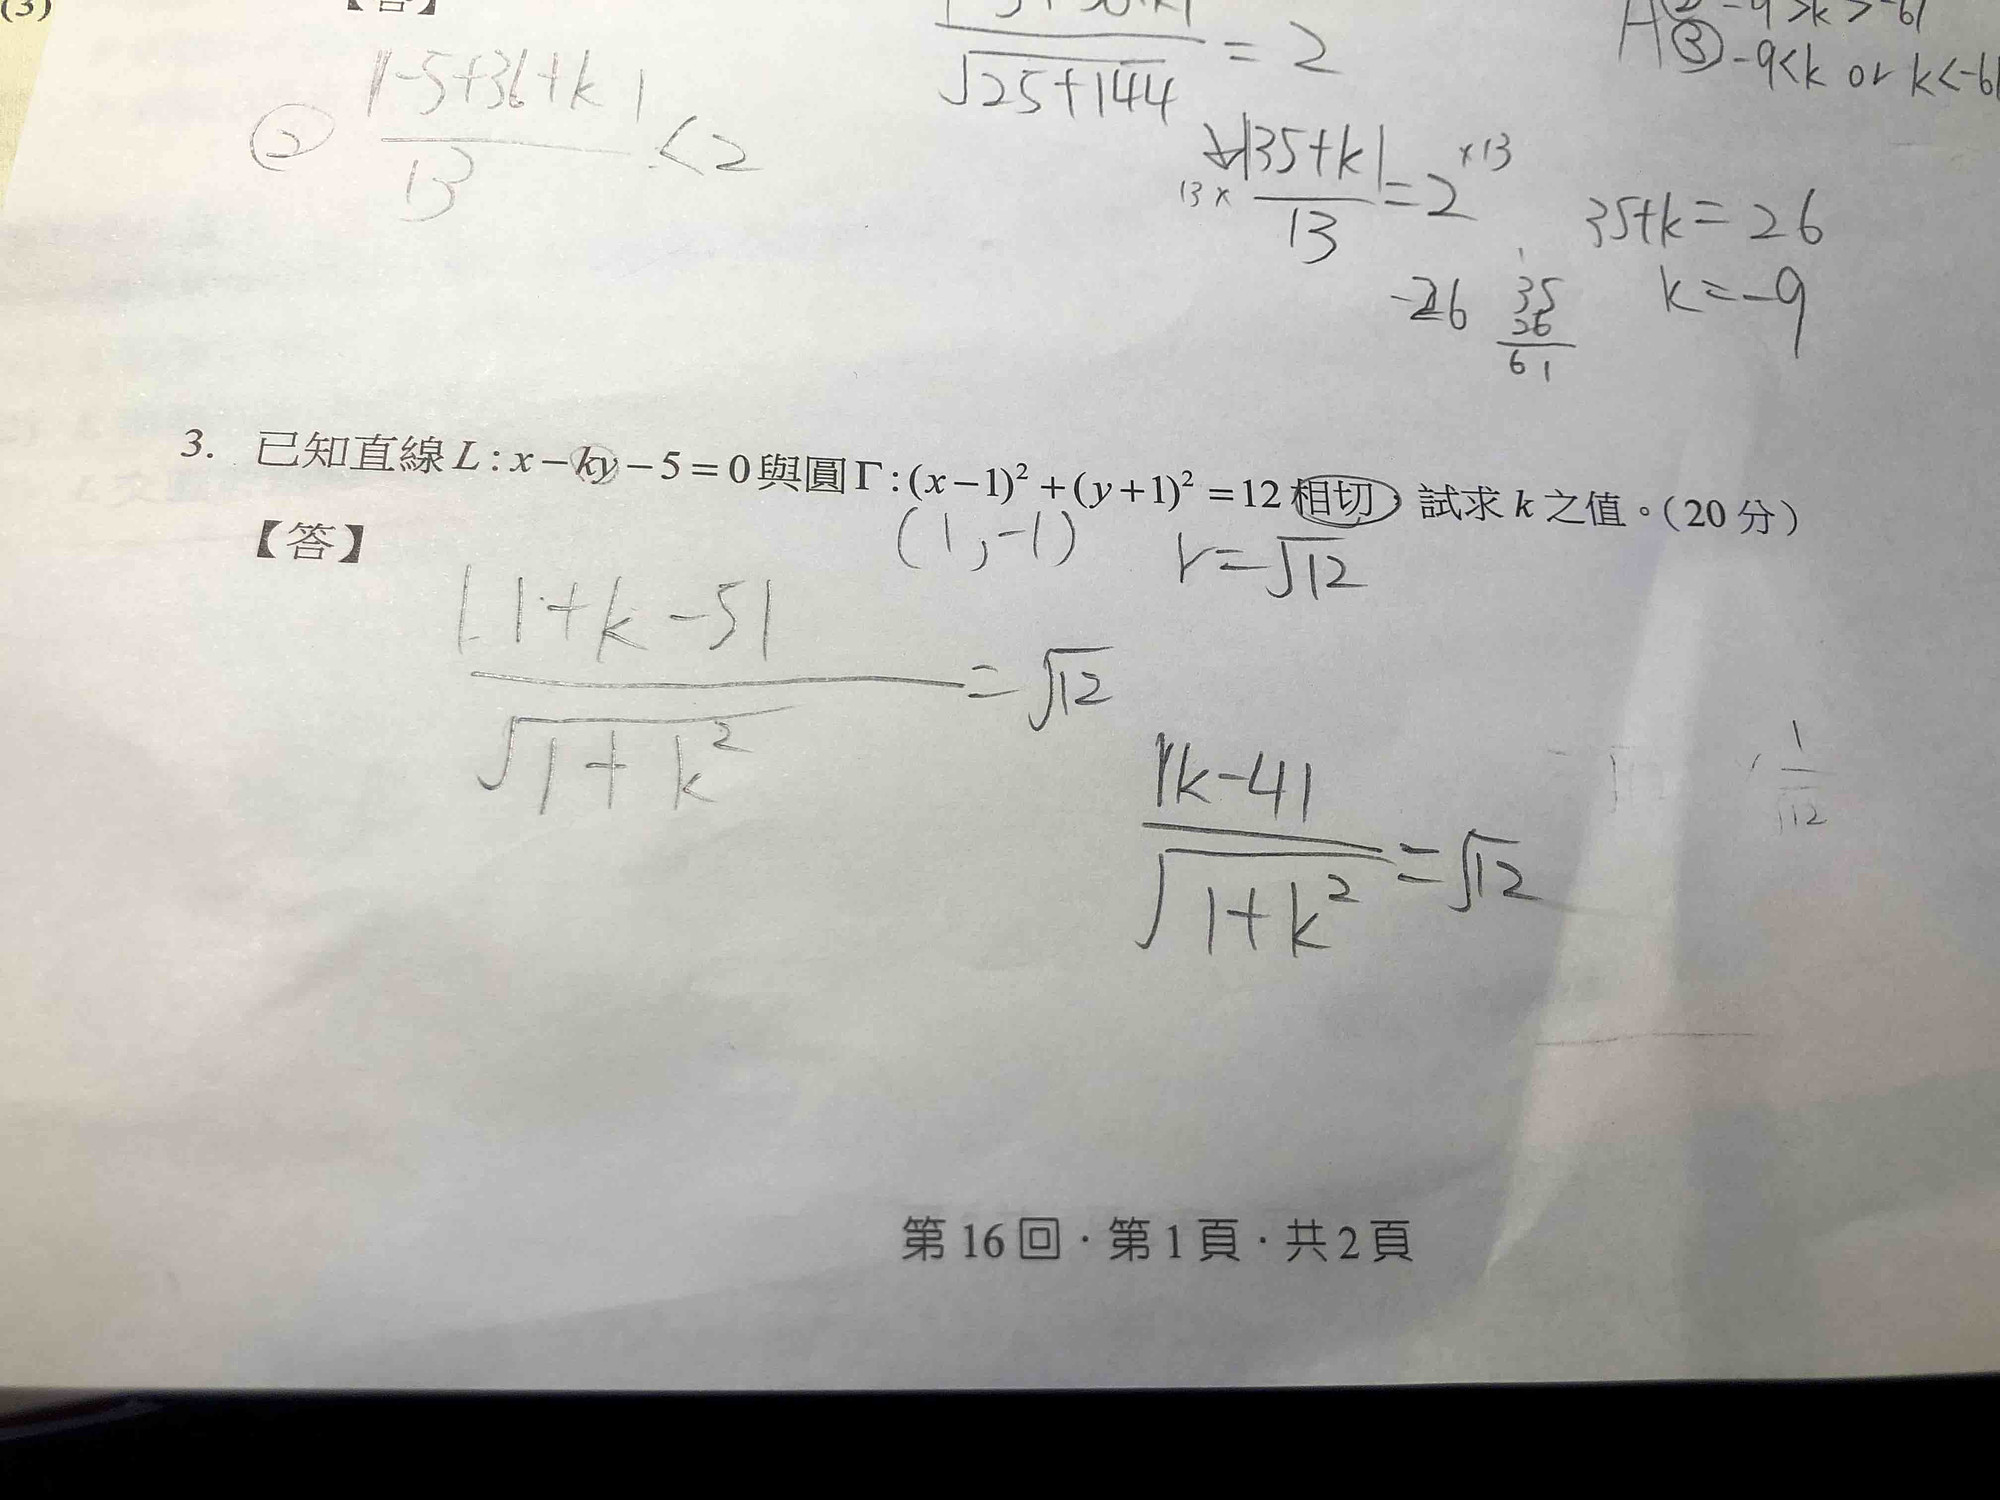 (3)
【答】
② |-5+36+k| / 13 < 2
√25+144 = 2
-9>k>-61
③ -9<k or k<-61
13× |35+k| / 13 = 2 ×13
35+k=26
k=-9
-26
35
26
61
3. 已知直線 L : x − ky − 5 = 0 與圓 Γ : (x − 1)² + (y + 1)² = 12 相切,試求 k 之值。(20 分)
【答】
(1,-1) r=√12
|1+k-5| / √1+k² = √12
|k-4| / √1+k² = √12
1 / √12
第 16 回 · 第 1 頁 · 共 2 頁